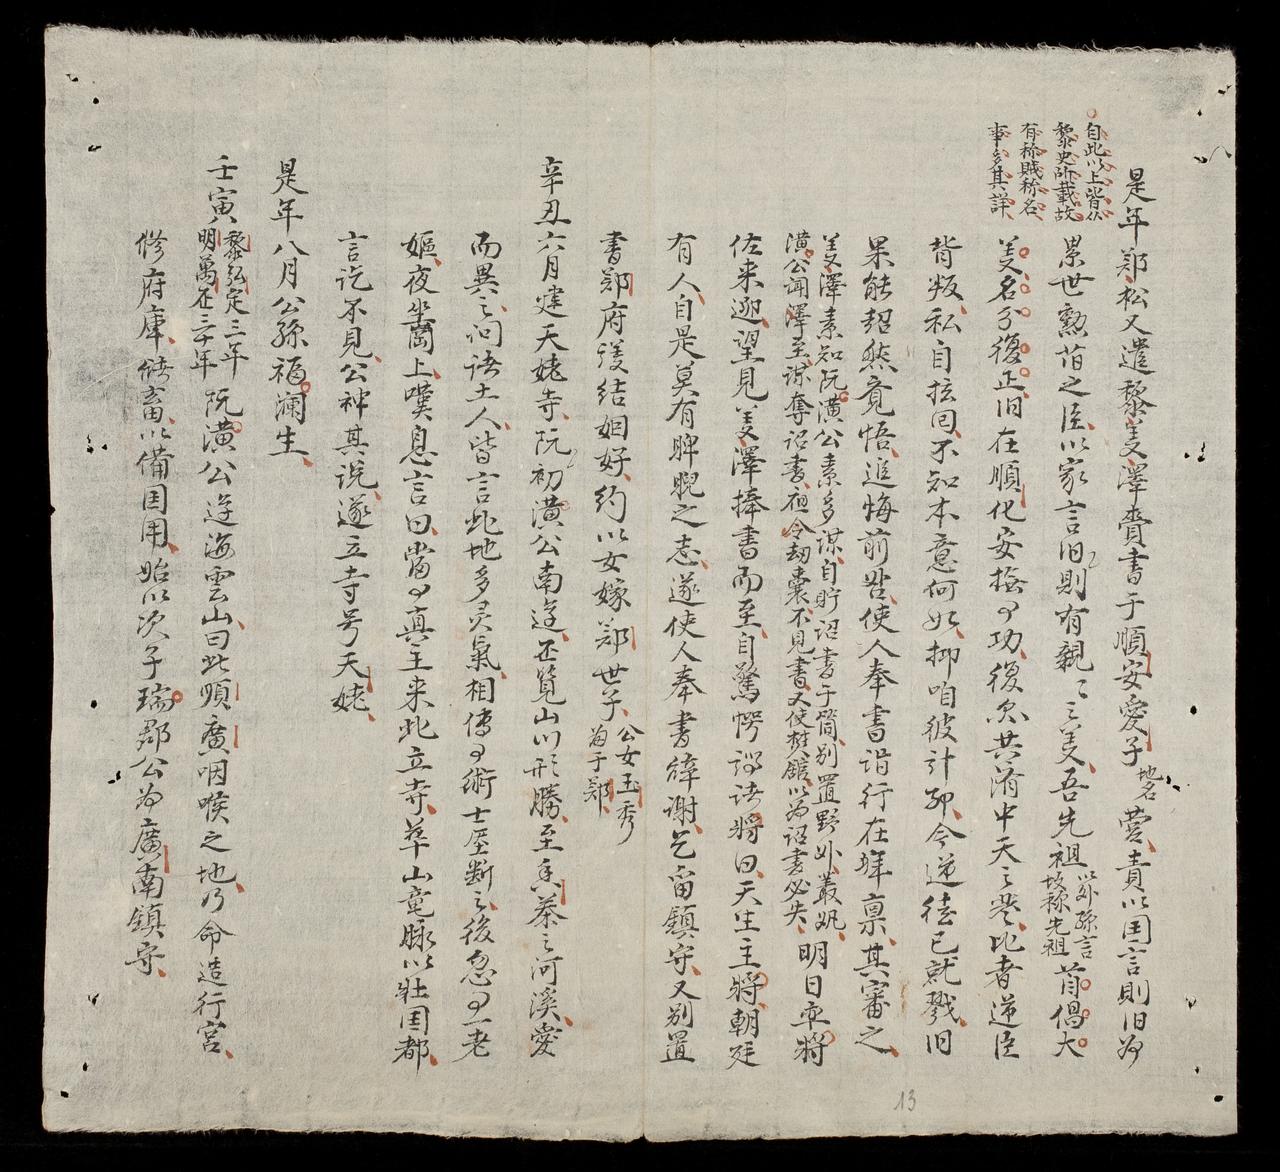 自此以上皆仍
黎史所載故
有称賊称名
事多其詳
是年鄭松又遣黎美澤賫書于順安愛子地名营責以国言則旧为
累世勲旧之臣以家言旧則有親〻之美吾先祖以外孫言故称先祖首倡大
美名分復正旧在順化安撫有功後忽共淆中天之恭比者逆臣
背叛私自拡囙不知本意何如抑咱彼計耶今逆徒已就戮旧
果能超然竟悟追悔前愆使人奉書诣行在拜禀其審之
美澤素知阮潢公素多謀自貯詔書于筒别置野外叢帆
潢公闻澤至謀奪诏書夜令刼囊不見書又使焚館以为诏書必失明日率將
佐来迎望見美澤捧書而至自驚愕謂諸將曰天生主將朝廷
有人自是莫有睥睨之志遂使人奉書緯謝乞留鎮守又别置
書鄭府後结姻好约以女嫁鄭世子公女玉秀为于鄭
辛丑六月建天姥寺阮初潢公南遊歷覧山川形勝至香茶之河溪愛
而異之问诸土人皆言此地多灵氣相傳有術士壓断之後忽有一老
嫗夜坐崗上嘆息言曰當有真主来此立寺萃山竜脉以壮国都
言讫不見公神其说遂立寺号天姥
是年八月公孫福瀾生
壬寅黎弘定三年明萬历三十年阮潢公遊海雲山曰此順廣咽喉之地乃命造行宫
修府庫储畜以備国用始以次子瑞郡公为廣南鎮守
13